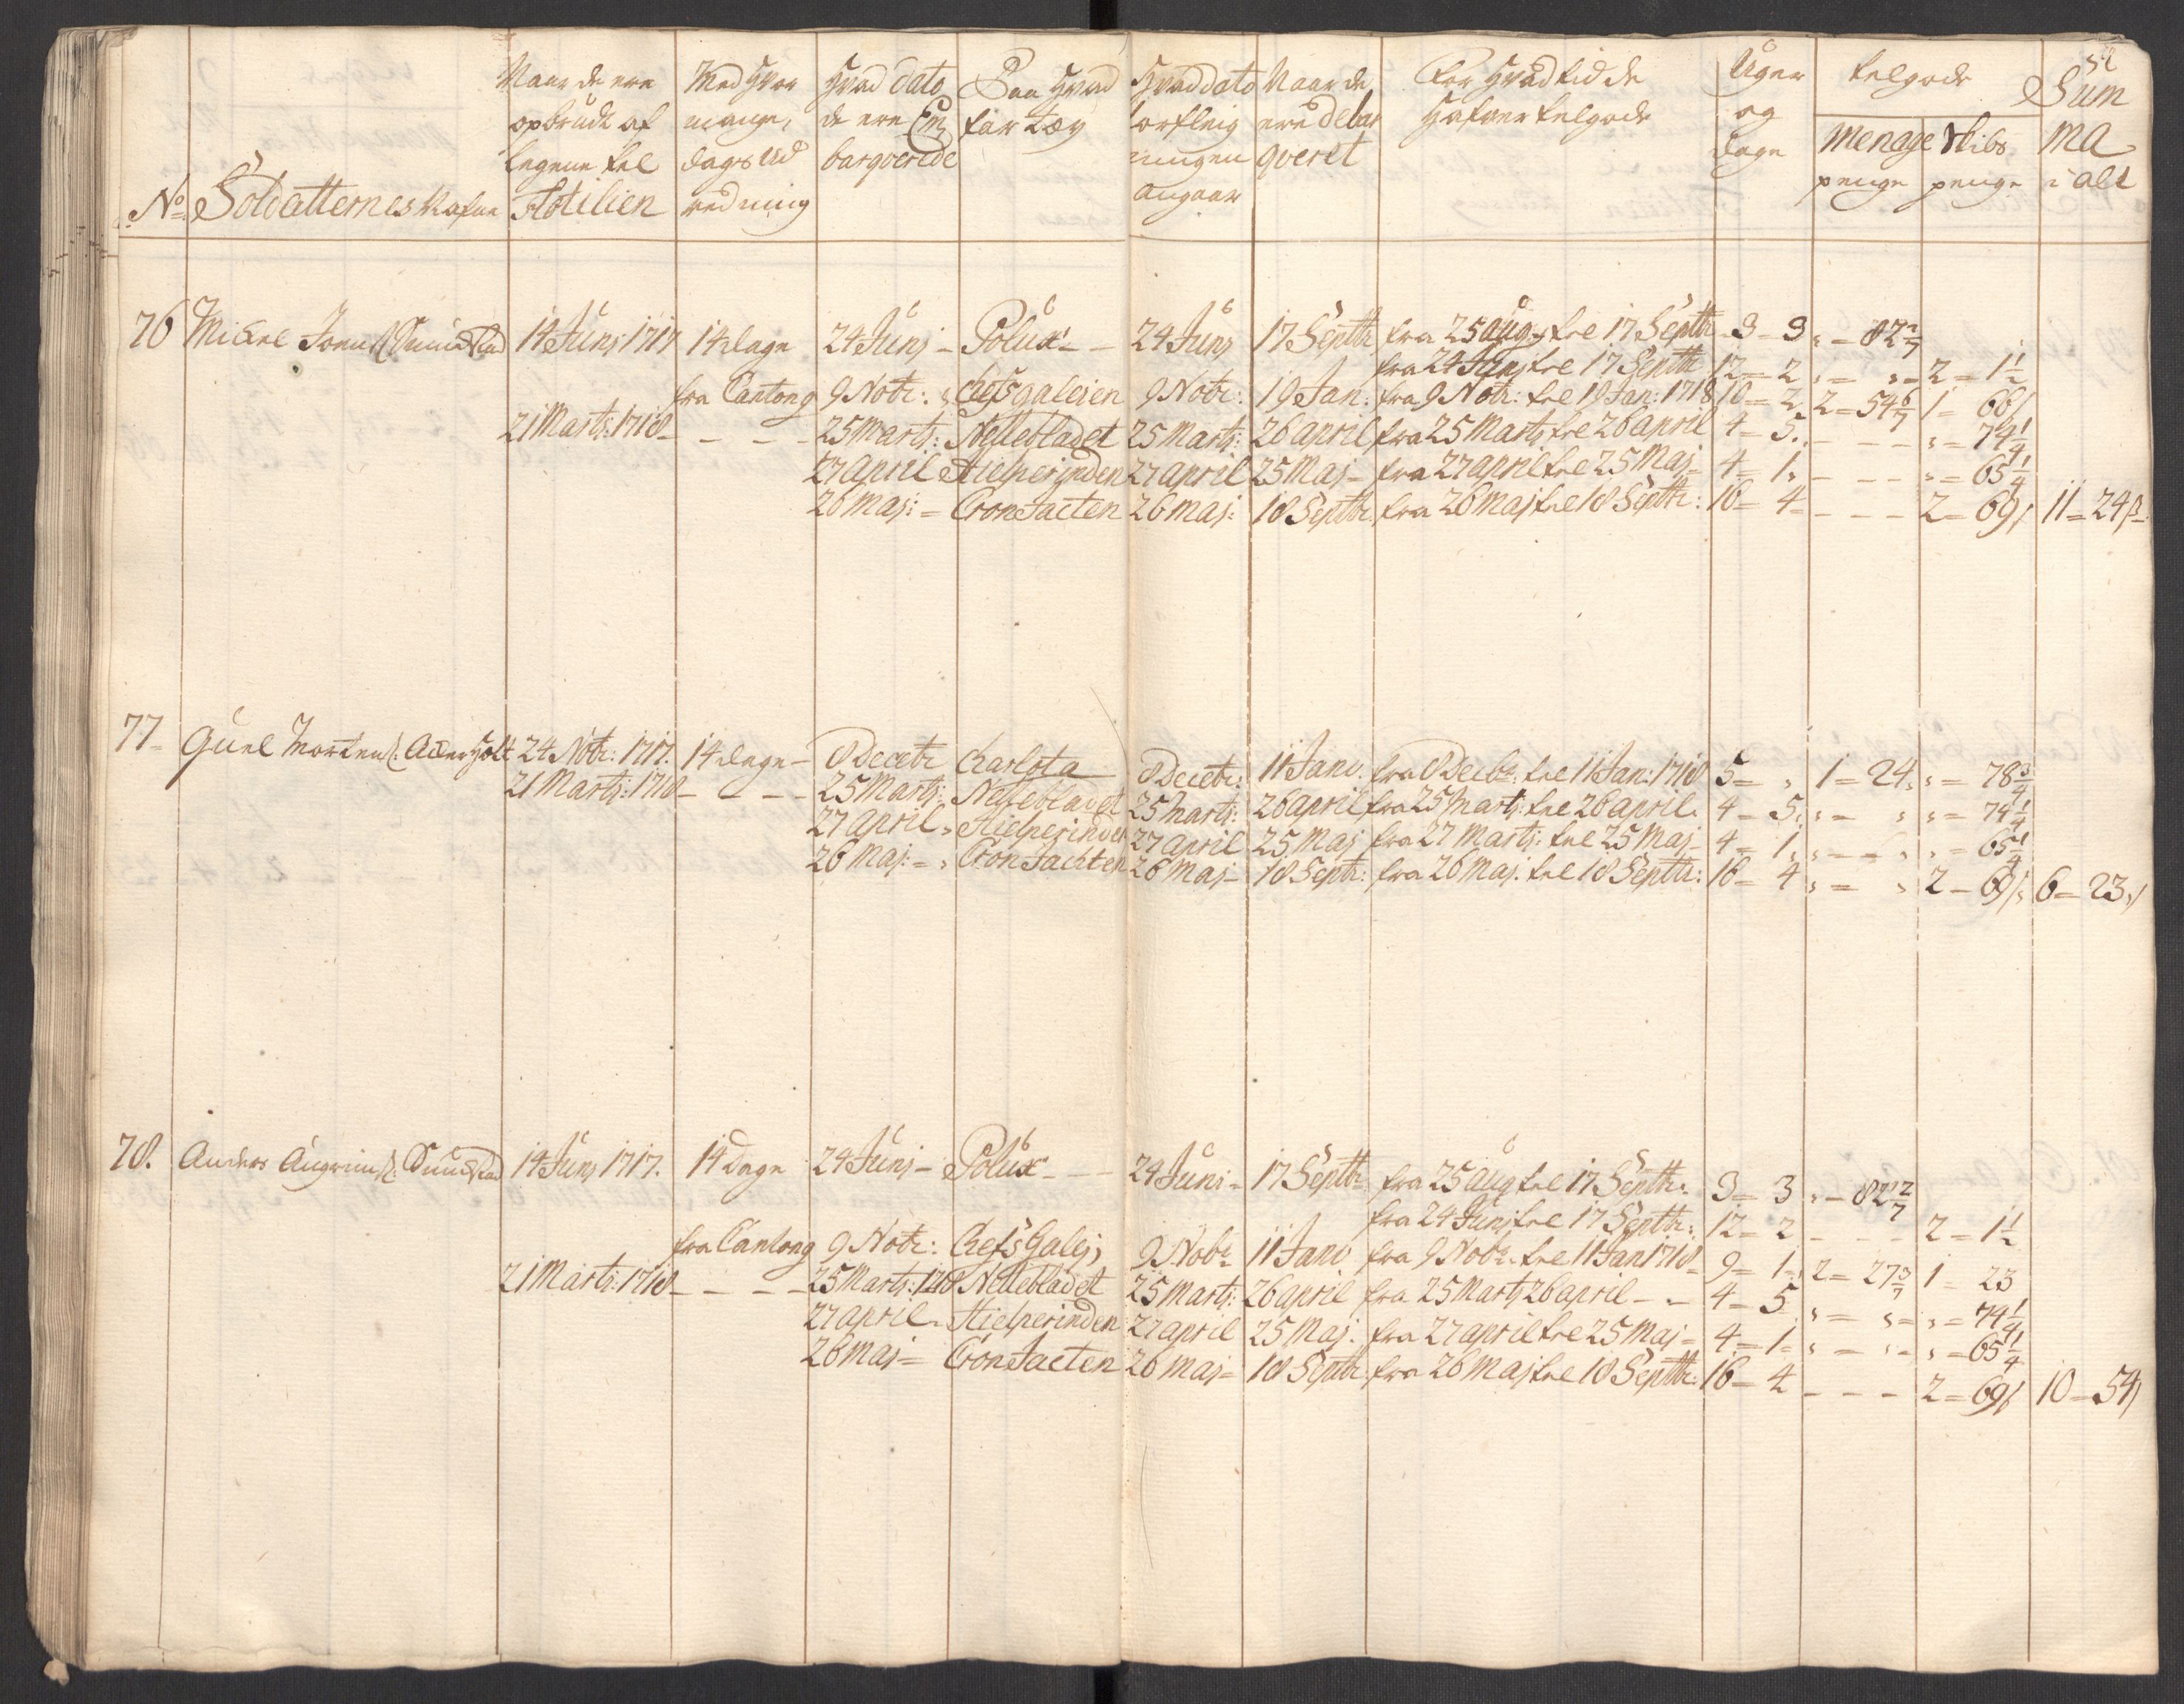 52
No. Soldatternes Nafne
Naar de ere opbrudt af legene tel Flotilien
Med hvor mange dages Ud redning
Hvad dato de ere Em barqverede
Paa Hvad far tøy
Hvad dato forfleig ningen angaar
Naar de ere debar qveret
For Hvad tid de Hafver telgode
Uger og Dage
telgode
Menage penge
Skibs penge
Sum ma i alt
76 Mickel Joens: Sundstad 14 Junj: 1717 14 dage 24 Junj - Polux - - 24 Junj 17 Septbr fra 25 aug: tel 17 Septbr 3 - 3 " - 82 2/7
fra 24 Junj tel 17 Septbr 12 = 2 " = " = 2 = 1 1/2
fra Cantong 9 Nobr: Chefs galeien 9 Nobr: 19 Jan: fra 9 Nobr: tel 19 Jan: 1718 10 = 2 2 = 54 6/7 1 = 66
21 Marts: 1718 - - - - 25 Marts: Nellebladet 25 Marts: 26 april fra 25 Marts tel 26 april 4 = 5. - - - " = 74 1/4
27 april Hielperinden 27 april 25 Maj - fra 27 april tel 25 Maj - 4 = 1. - - - " = 65 1/4
26 Maj: = Cron Jacten 26 maj: 18 Septbr. fra 26 Maj tel 18 Septbr: 16 = 4 - - - - 2 = 69 11 = 24 ß
77 - Guel Mortens: Ackerholt 24 Nobr: 1717. 14 dage - 8 Decebr Charlota 8 Decebr: 11 Janv. fra 8 Decbr. tel 11 Jan: 1718 5 = " 1 = 24 " = 78 3/4
21 Marts: 1718 - - - - 25 Marts: Nellebladet 25 Marts: 26 april fra 25 Marts: tel 26 april. 4 - 5. " - " " = 74 1/4
27 april " Hielperinden 27 april 25 Maj fra 27 Marts: tel 25 Maj - 4 - 1. " - - " " = 65 1/4
26 Maj: = " Cron Jachten 26 Maj - 18 Septr: fra 26 Maj. tel 18 Septbr: 16 - 4 " = " 2 - 69 6 = 23
78. Anders Angrims: Sundstad 14 Junj 1717. 14 Dage 24 Junj - Polux - - 24 Juni = 17 Septbr fra 25 aug tel 17 Septbr: 3 = 3 " - 82 2/7
fra 24 Junj tel 17 Septbr: 12 = 2 - - - 2 = 1 1/2
fra Cantong 9 Nobr: Chefs Galej, 9 Nobr 11 Janv fra 9 Nobr: tel 11 Jan 1718 - 9 = 1 - 2 = 27 3/7 1 = 23
21 Marts: 1718 - - - - 25 Marts: 1718 Nellebladet 25 Marts: 26 april fra 25 Marts 26 april - - 4 - 5 " = " = " = 74 1/4
27 april - Hielperinden 27 april 25 Maj: fra 27 april tel 25 Maj = 4 = 1 = " = " = " = 65 1/4
26 Maj = Cron Jacten 26 Maj = 18 Septbr. fra 26 Maj tel 18 Septbr: 16 - 4 - - - 2 = 69 10 - 54